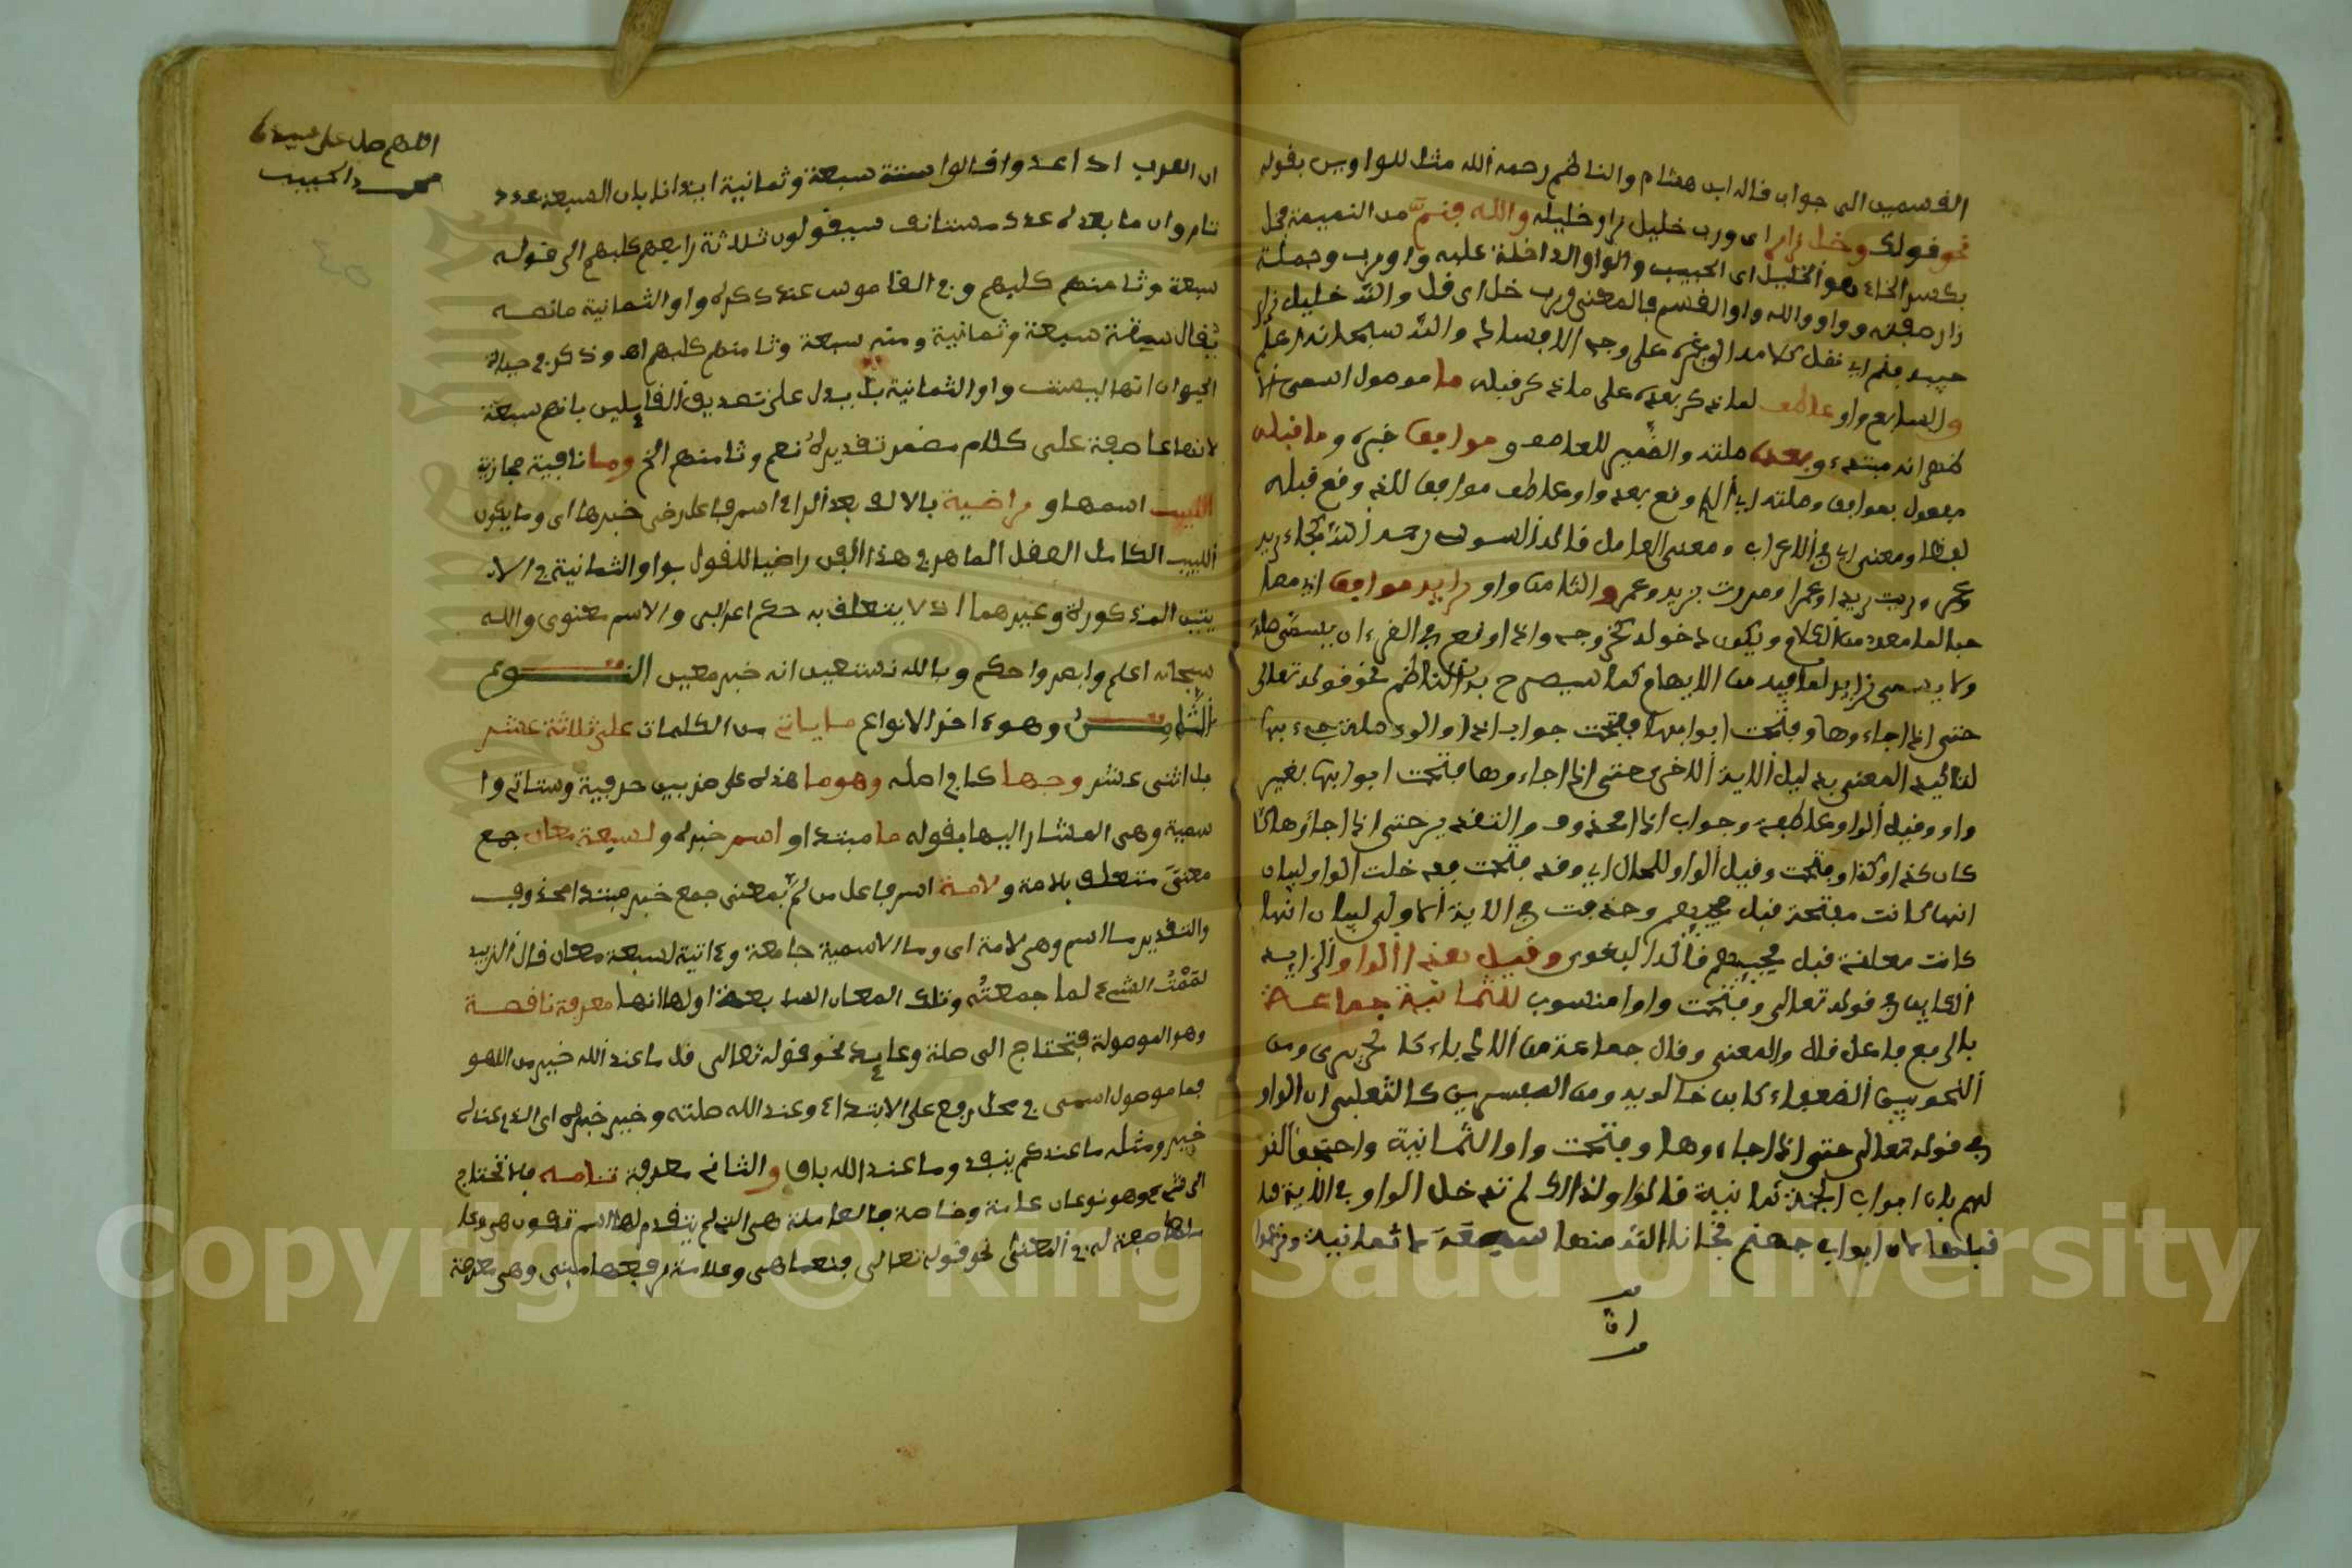 القسمين الى جواب قاله ابن هشام والناظم رحمه الله مثل للواوين بقوله
نحو قولك وخل زار اي ورب خليل زار خليله والله فنم من النميمة فخل
بكسر الخاء هو الخليل اي الحبيب والواو الداخلة عليه واو رب وجملة
زار صفته وواو والله واو القسم فالمعنى ورب خل اي قل والله خليل زار
حبيبه فنم اي نقل كلامه الى غيره على وجه الافساد والله سبحانه اعلم
والسابع واو عاطف لما ذكر بعده على ما ذكر قبله ما موصول اسمي
مبتدء وبعده صلته والضمير للعاطف وموافق خبره وما قبله
مفعول بموافق وصلته اي الذي وقع بعد واو عاطف موافق للذي وقع قبله
لفظا ومعنى اي في الاعراب ومعنى العامل قاله السوسي رحمه الله كجاء زيد
وعمرو رايت زيدا وعمرا ومررت بزيد وعمرو والثامن واو زايد موافق
من الكلام ويكون دخوله كخروجه واذا وقع في القرءان يسمى صلة
ولا يسمى زايد لما فيه من الايهام كما سيصرح به الناظم نحو قوله تعالى
حتى اذا جاءوها وفتحت ابوابها ففتحت جواب اذا والواو صلة جيء بها
لتاكيد المعنى بدليل الاية الاخرى حتى اذا جاءوها فتحت ابوابها بغير
واو وقيل الواو عاطفة وجواب اذا محذوف والتقدير حتى اذا جاؤوها
كان كذا وكذا وفتحت وقيل الواو للحال اي وقد فتحت فدخلت الواو لبيان
انها كانت مفتحة قبل مجيئهم وحذفت في الاية الاولى لبيان انها
كانت مغلقة قبل مجيئهم قاله البغوي وقيل هذا الواو الزايد
الكاين في قوله تعالى وفتحت واو منسوب للثمانية جماعة
بالرفع فاعل قال والمعنى وقال جماعة من الادباء كالحريري ومن
النحويين الضعفاء كابن خالويه ومن المفسرين كالثعلبي ان الواو
في قوله تعالى حتى اذا جاءوها وفتحت واو الثمانية واحتج
لهم بان ابواب الجنة ثمانية قالوا ولذلك لم تدخل الواو في الاية
قبلها لان ابواب جهنم نجانا الله منها سبعة لا ثمانية وزعموا
ان
اللهم صل على سيدنا
محمد الحبيب
ان العرب اذا عدوا قالوا ستة سبعة وثمانية ايذانا بان السبعة عدد
تام وان ما بعده عدد مستانف سيقولون ثلاثة رابعهم كلبهم الى قوله
سبعة وثامنهم كلبهم وفي القاموس عند ذكره واو الثمانية ما نصه
يقال ستة سبعة وثمانية ومنه سبعة وثامنهم كلبهم اه وذكر في حياة
الحيوان انها ليست واو الثمانية بل يدل على تصديق القايلين بانهم سبعة
لانها عاطفة على كلام مضمر تقديره نعم وثامنهم الخ وما نافية حجازية
اللبيب اسمها وراضية بالالف بعد الراء اسم فاعل رضي خبرها اي وما يكون
اللبيب الكامل العقل الماهر في هذا الفن راضيا للقول بواو الثمانية في الا
يتين المذكورة وغيرهما اذ لا يتعلق به حكم اعرابي ولا سر معنوي والله
سبحانه اعلم وابصر واحكم وبالله نستعين انه خير معين النوع
الثامن وهو ءاخر الانواع ما ياتي من الكلمات على ثلاثة عشر
بل اثنى عشر وجها كما في اصله وهو ما هذه على ضربين حرفية وستاتي وا
سمية وهي المشار اليها بقوله ما مبتدا واسم خبره ولسبعة معان جمع
معنى متعلق بلامة ولامة اسر فاعل من لم بمعنى جمع خبر مبتدا محذوف
والتقدير ما اسم وهي لامة اي وما الاسمية جامعة وءاتية لسبعة معان قال الزبيد
لممت الشيء لما جمعته وتلك المعان السابعة اولها انها معرفة ناقصة
وهو الموصولة فتحتاج الى صلة وعايد نحو قوله تعالى قل ما عند الله خير من اللهو
فما موصول اسمي في محل رفع على الابتداء وعند الله صلته وخير خبره اي الذي عنده
خير ومثله ما عندكم ينفد وما عند الله باق والثاني معرفة تامه فلا تحتاج
الى شيء وهو نوعان عامة وخاصة فالعامة هي التي لم يتقدم لها اسم تكون هي وعا
ملها صفة له في المعنى نحو قوله تعالى فنعما هي وعلامة رفعها مبني وهي معرفة
Copyright © King Saud University